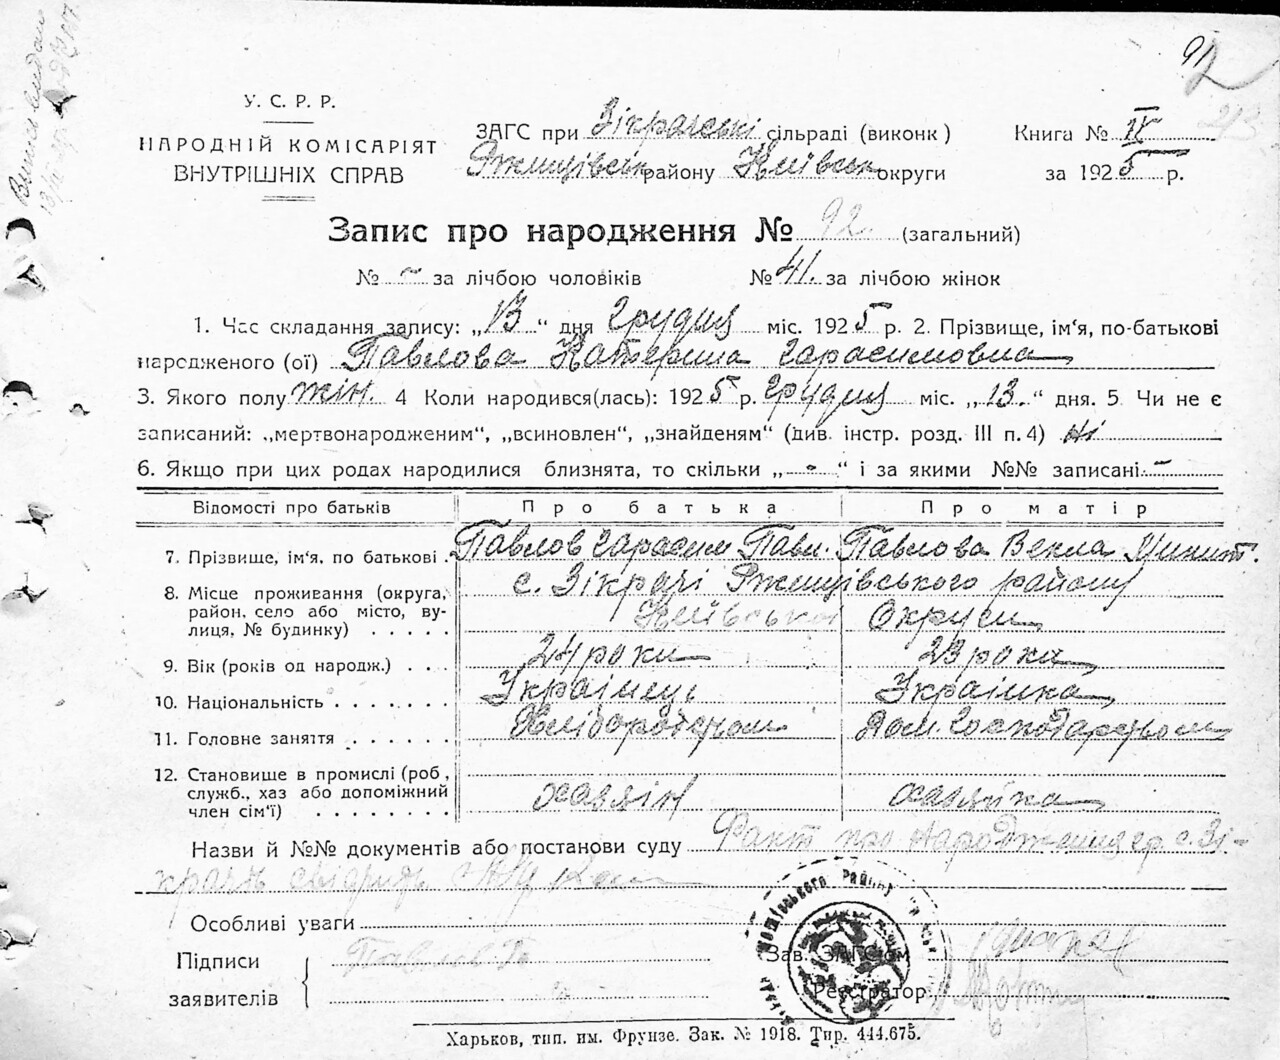 91
2
213
У. С. Р. Р.
НАРОДНІЙ КОМІСАРІЯТ
ВНУТРІШНІХ СПРАВ
ЗАГС при Зікрачські сільраді (виконк)
Ржищівськ району Київськ округи
Книга № IV
за 1925 р.
Запис про народження № 92. (загальний)
№ - за лічбою чоловіків № 41. за лічбою жінок
1. Час складання запису: „13“ дня Грудня міс. 1925 р. 2. Прізвище, ім‘я, по-батькові
народженого (ої) Павлова Катерина Гарасимовна
3. Якого полу жін. 4 Коли народився(лась): 1925 р. Грудня міс. „13.“ дня. 5. Чи не є
записаний: „мертвонародженим“, „всиновлен“, „знайденям“ (див. інстр. розд. III п. 4) Ні
6. Якщо при цих родах народилися близнята, то скільки „-“ і за якими №№ записані -
Відомості про батьків Про батька Про матір
7. Прізвище, ім‘я, по батькові . Павлов Гарасим Павл. Павлова Векла Микит.
8. Місце проживання (округа, с. Зікрачі Ржищівського району
район, село або місто, ву-
лиця, № будинку) . . . . . Київської Округи
9. Вік (років од народж.) . . . 24 роки 23 роки
10. Національність . . . . . . . Українець Українка
11. Головне заняття . . . . . . Хліборобством Дом. Господарством
12. Становище в промислі (роб.,
служб., хаз або допоміжний хазяїн хазяйка
член сім‘ї) . . . . . . . .
Назви й №№ документів або постанови суду Факт про народження гр. с. Зі-
крачь свідчить
Особливі уваги
Підписи Павлов Г.
заявителів
Зав. ЗАГС‘ом
Реєстратор
Харьков, тип. им. Фрунзе. Зак. № 1918. Тир. 444.675.